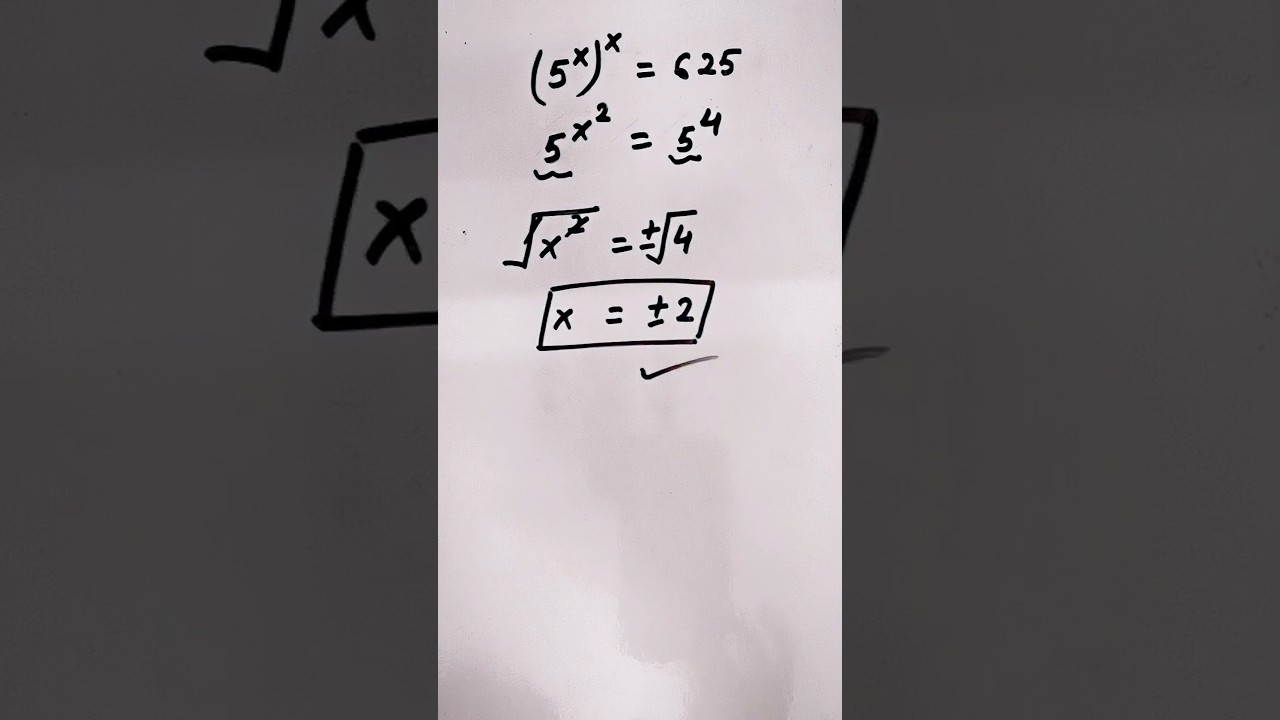 (5^x)^x = 625
5^x^2 = 5^4
√x^2 = ±√4
x = ±2